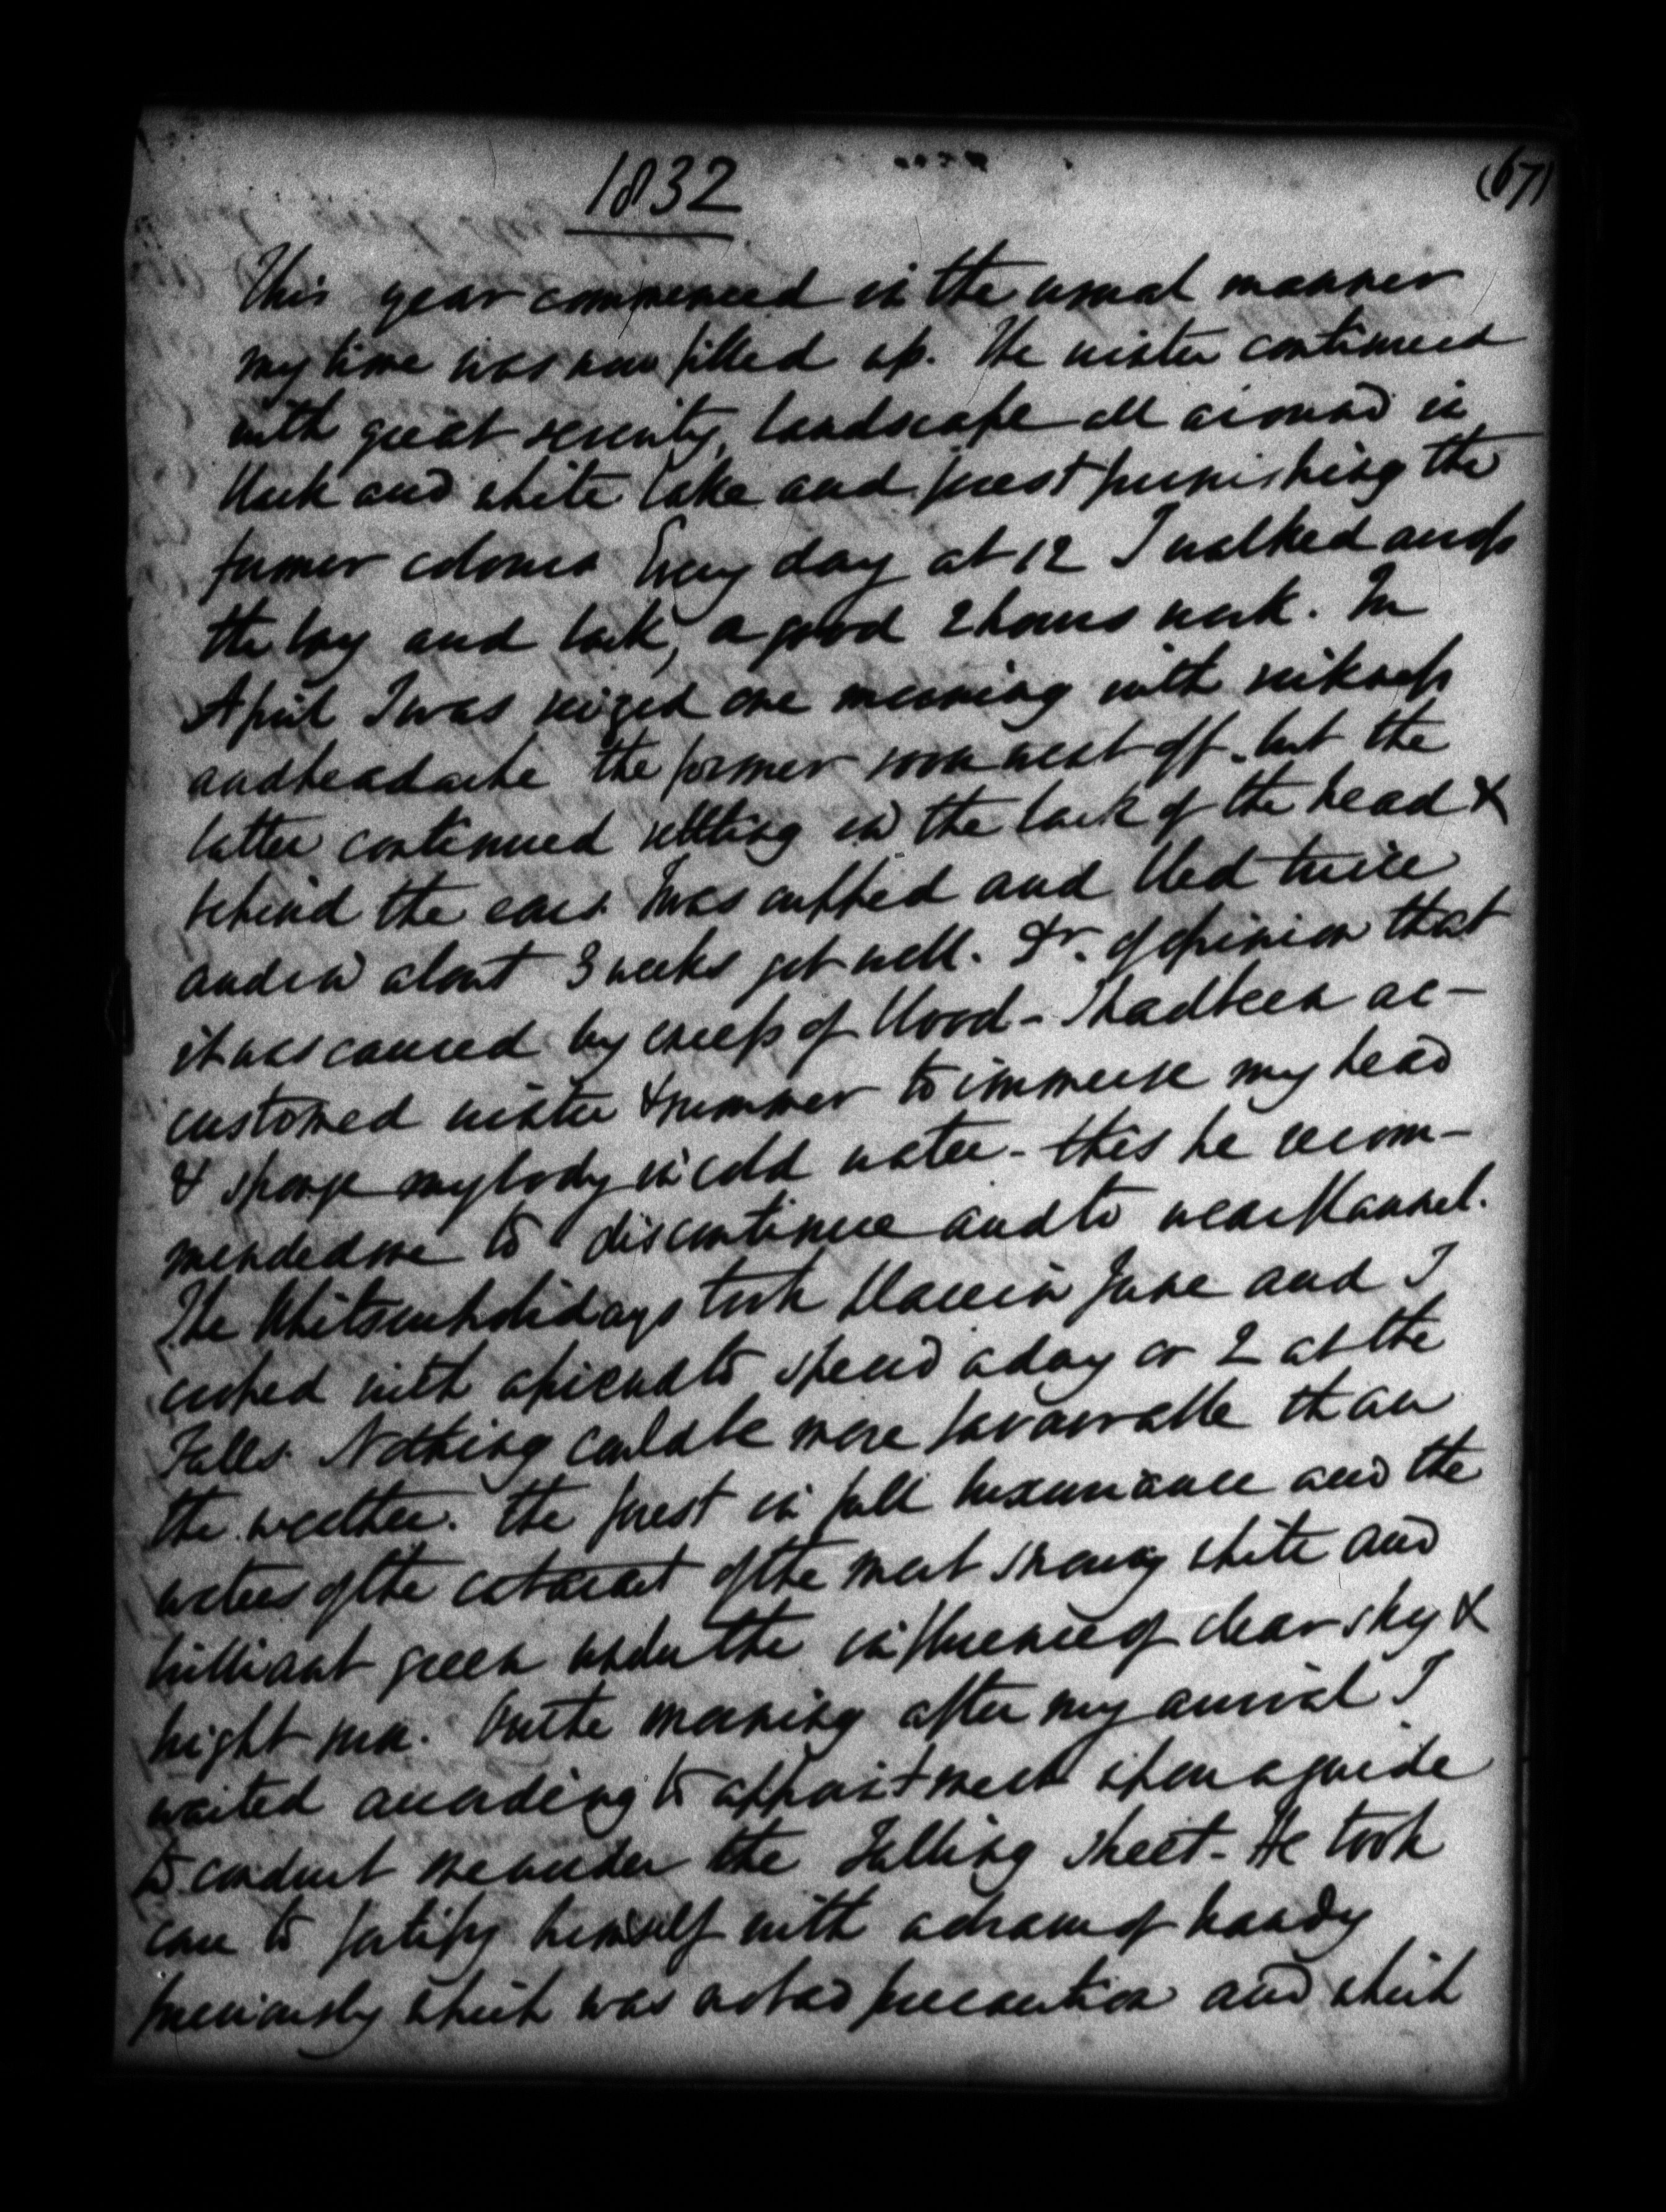 1832
(67)
This year commenced in the usual manner
my time was now filled up. The winter continued
with great severity, landscape all around in
black and white lake and forest furnishing the
former colours Every day at 12 I walked across
the bay and back, a good 2 hours work. In
April I was seized one morning with sickness
and headache the former soon went off, but the
latter continued settling in the back of the head &
behind the ears. I was cupped and bled twice
and in about 3 weeks got well. Dr. of opinion that
it was caused by excess of blood - I had been ac-
customed winter & summer to immerse my head
& sponge my body in cold water - this he recom-
mended me to discontinue and to wear flannel.
The Whitsunholidays took place in June and I
crossed with a friend to spend a day or 2 at the
Falls. Nothing could be more favourable than
the weather. The forest in full luxuriance and the
waters of the cataract of the most snowy white and
brilliant green under the influence of clear sky &
bright sun. On the morning after my arrival I
waited according to appointment upon a guide
to conduct me under the Falling Sheet - He took
care to fortify himself with a dram of brandy
previously which was no bad precaution and which